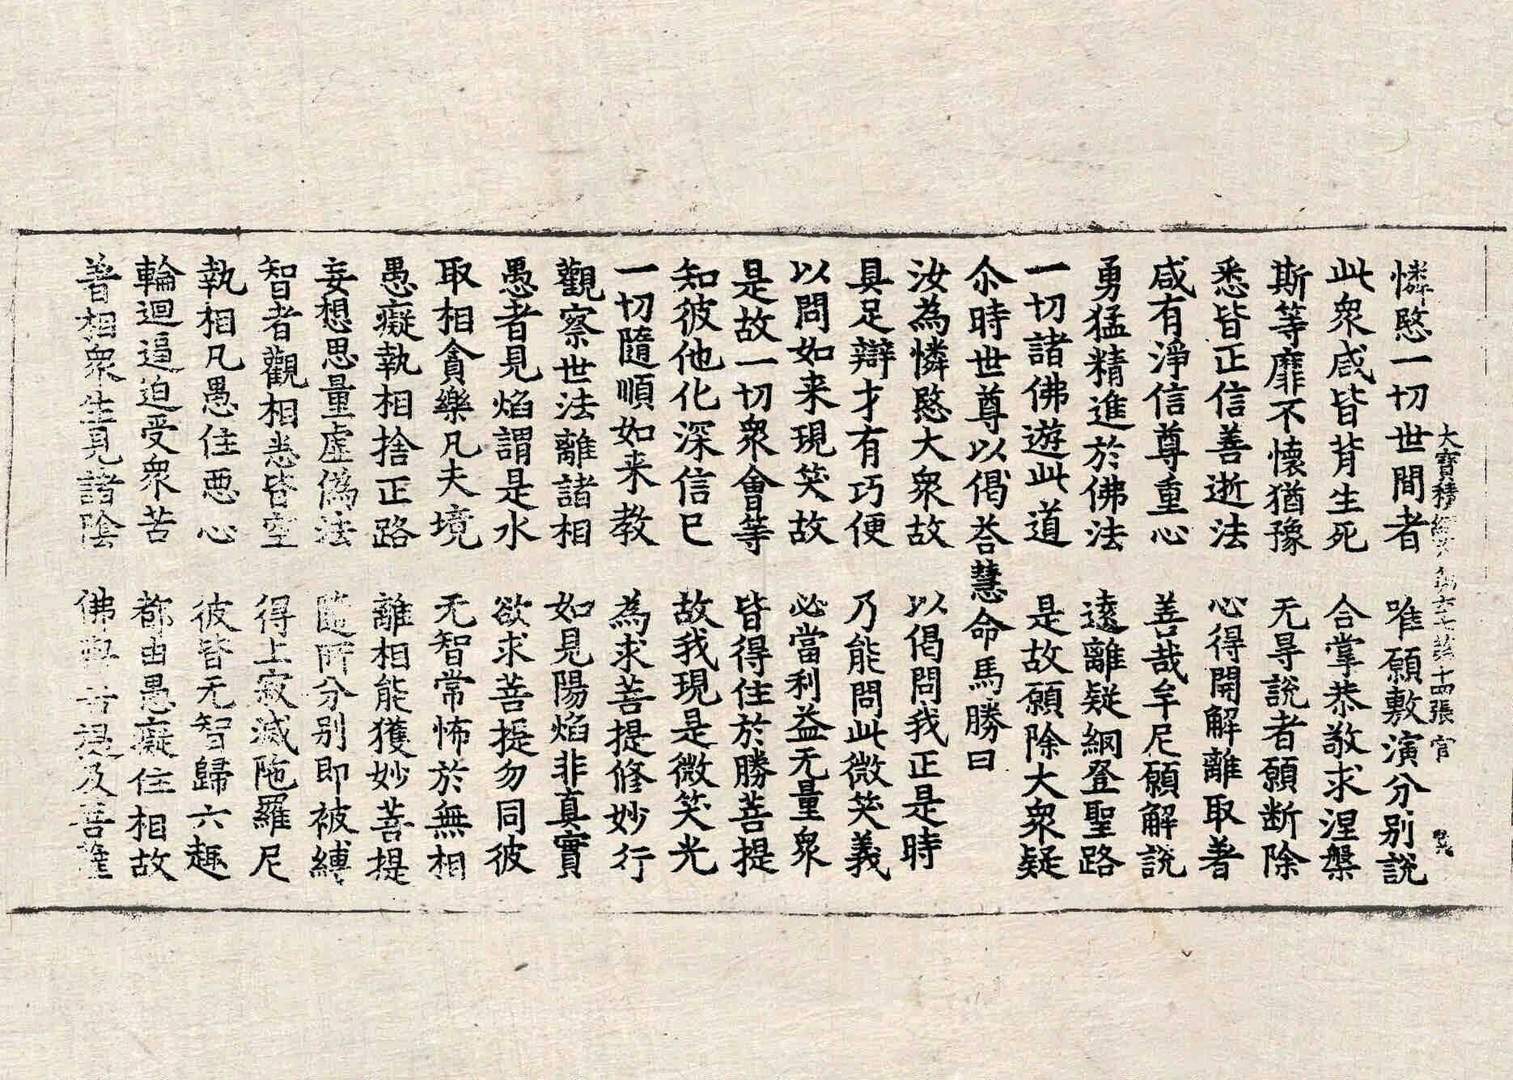 大寶積經 第十四張 官
憐愍一切世間者 唯願敷演分別說
此衆咸皆背生死 合掌恭敬求涅槃
斯等靡不懷猶豫 无㝵說者願断除
悉皆正信善逝法 心得開解離取著
咸有淨信尊重心 善哉牟尼願解說
勇猛精進於佛法 遠離疑網登聖路
一切諸佛遊此道 是故願除大衆疑
尒時世尊以偈荅慧命馬勝曰
汝為憐愍大衆故 以偈問我正是時
具足辯才有巧便 乃能問此微笑義
以問如来現笑故 必當利益无量衆
是故一切衆會等 皆得住於勝菩提
知彼他化深信已 故我現是微笑光
一切隨順如来教 為求菩提修妙行
觀察世法離諸相 如見陽焰非真實
愚者見焰謂是水 欲求菩提勿同彼
取相貪樂凡夫境 无智常怖於無相
愚癡執相捨正路 離相能獲妙菩提
妄想思量虛偽法 隨所分别即被縛
智者觀相悉皆空 得上寂滅陁羅尼
執相凡愚住惡心 彼皆无智歸六趣
輪迴逼迫受衆苦 都由愚癡住相故
著相衆生見諸陰 佛與菩提及菩薩